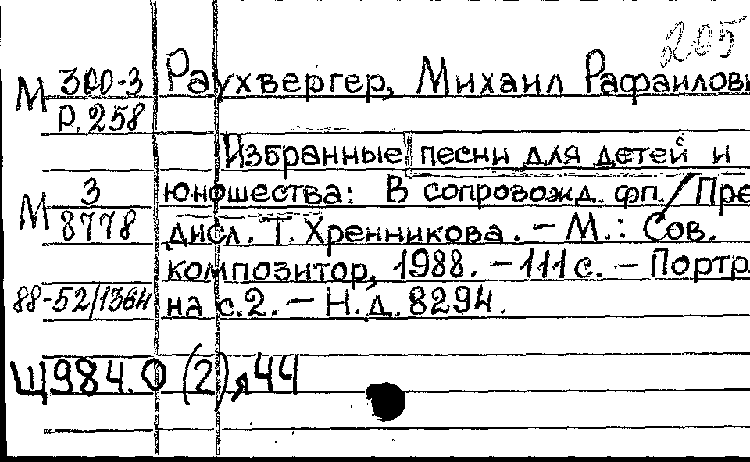 205
М 300-3 Раухвергер, Михаил Рафаилови
Р.258
Избранные песни для детей и
М 3 юношества: В сопровожд. фп./Пре
8778 дисл. Т. Хренникова. – М.: Сов.
композитор, 1988. – 111 с. – Портр.
88-52/1364 на с.2. – Н.д. 8294.
Щ984.0(2)я44